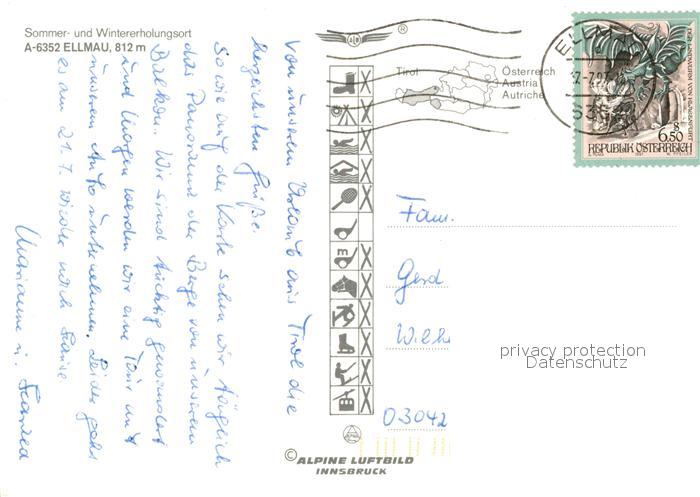 Sommer- und Wintererholungsort
A-6352 ELLMAU, 812 m
Von unserem Urlaub aus Tirol die
herzlichsten Grüße.
So wie auf der Karte sehen wir täglich
das Panorama der Berge von unserem
Balkon. Wir sind tüchtig gewandert
und morgen werden wir eine Tour mit
unserem Auto unternehmen. Leider geht
es am 21.7. wieder nach Hause
Marianne u.
®
Tirol
Österreich
Austria
Autriche
E
DER LINDWURM VON KLAGENFURT
6.50 S
REPUBLIK ÖSTERREICH
Fam.
Gerd
Wilh
privacy protection
Datenschutz
D 3042
© ALPINE LUFTBILD
INNSBRUCK